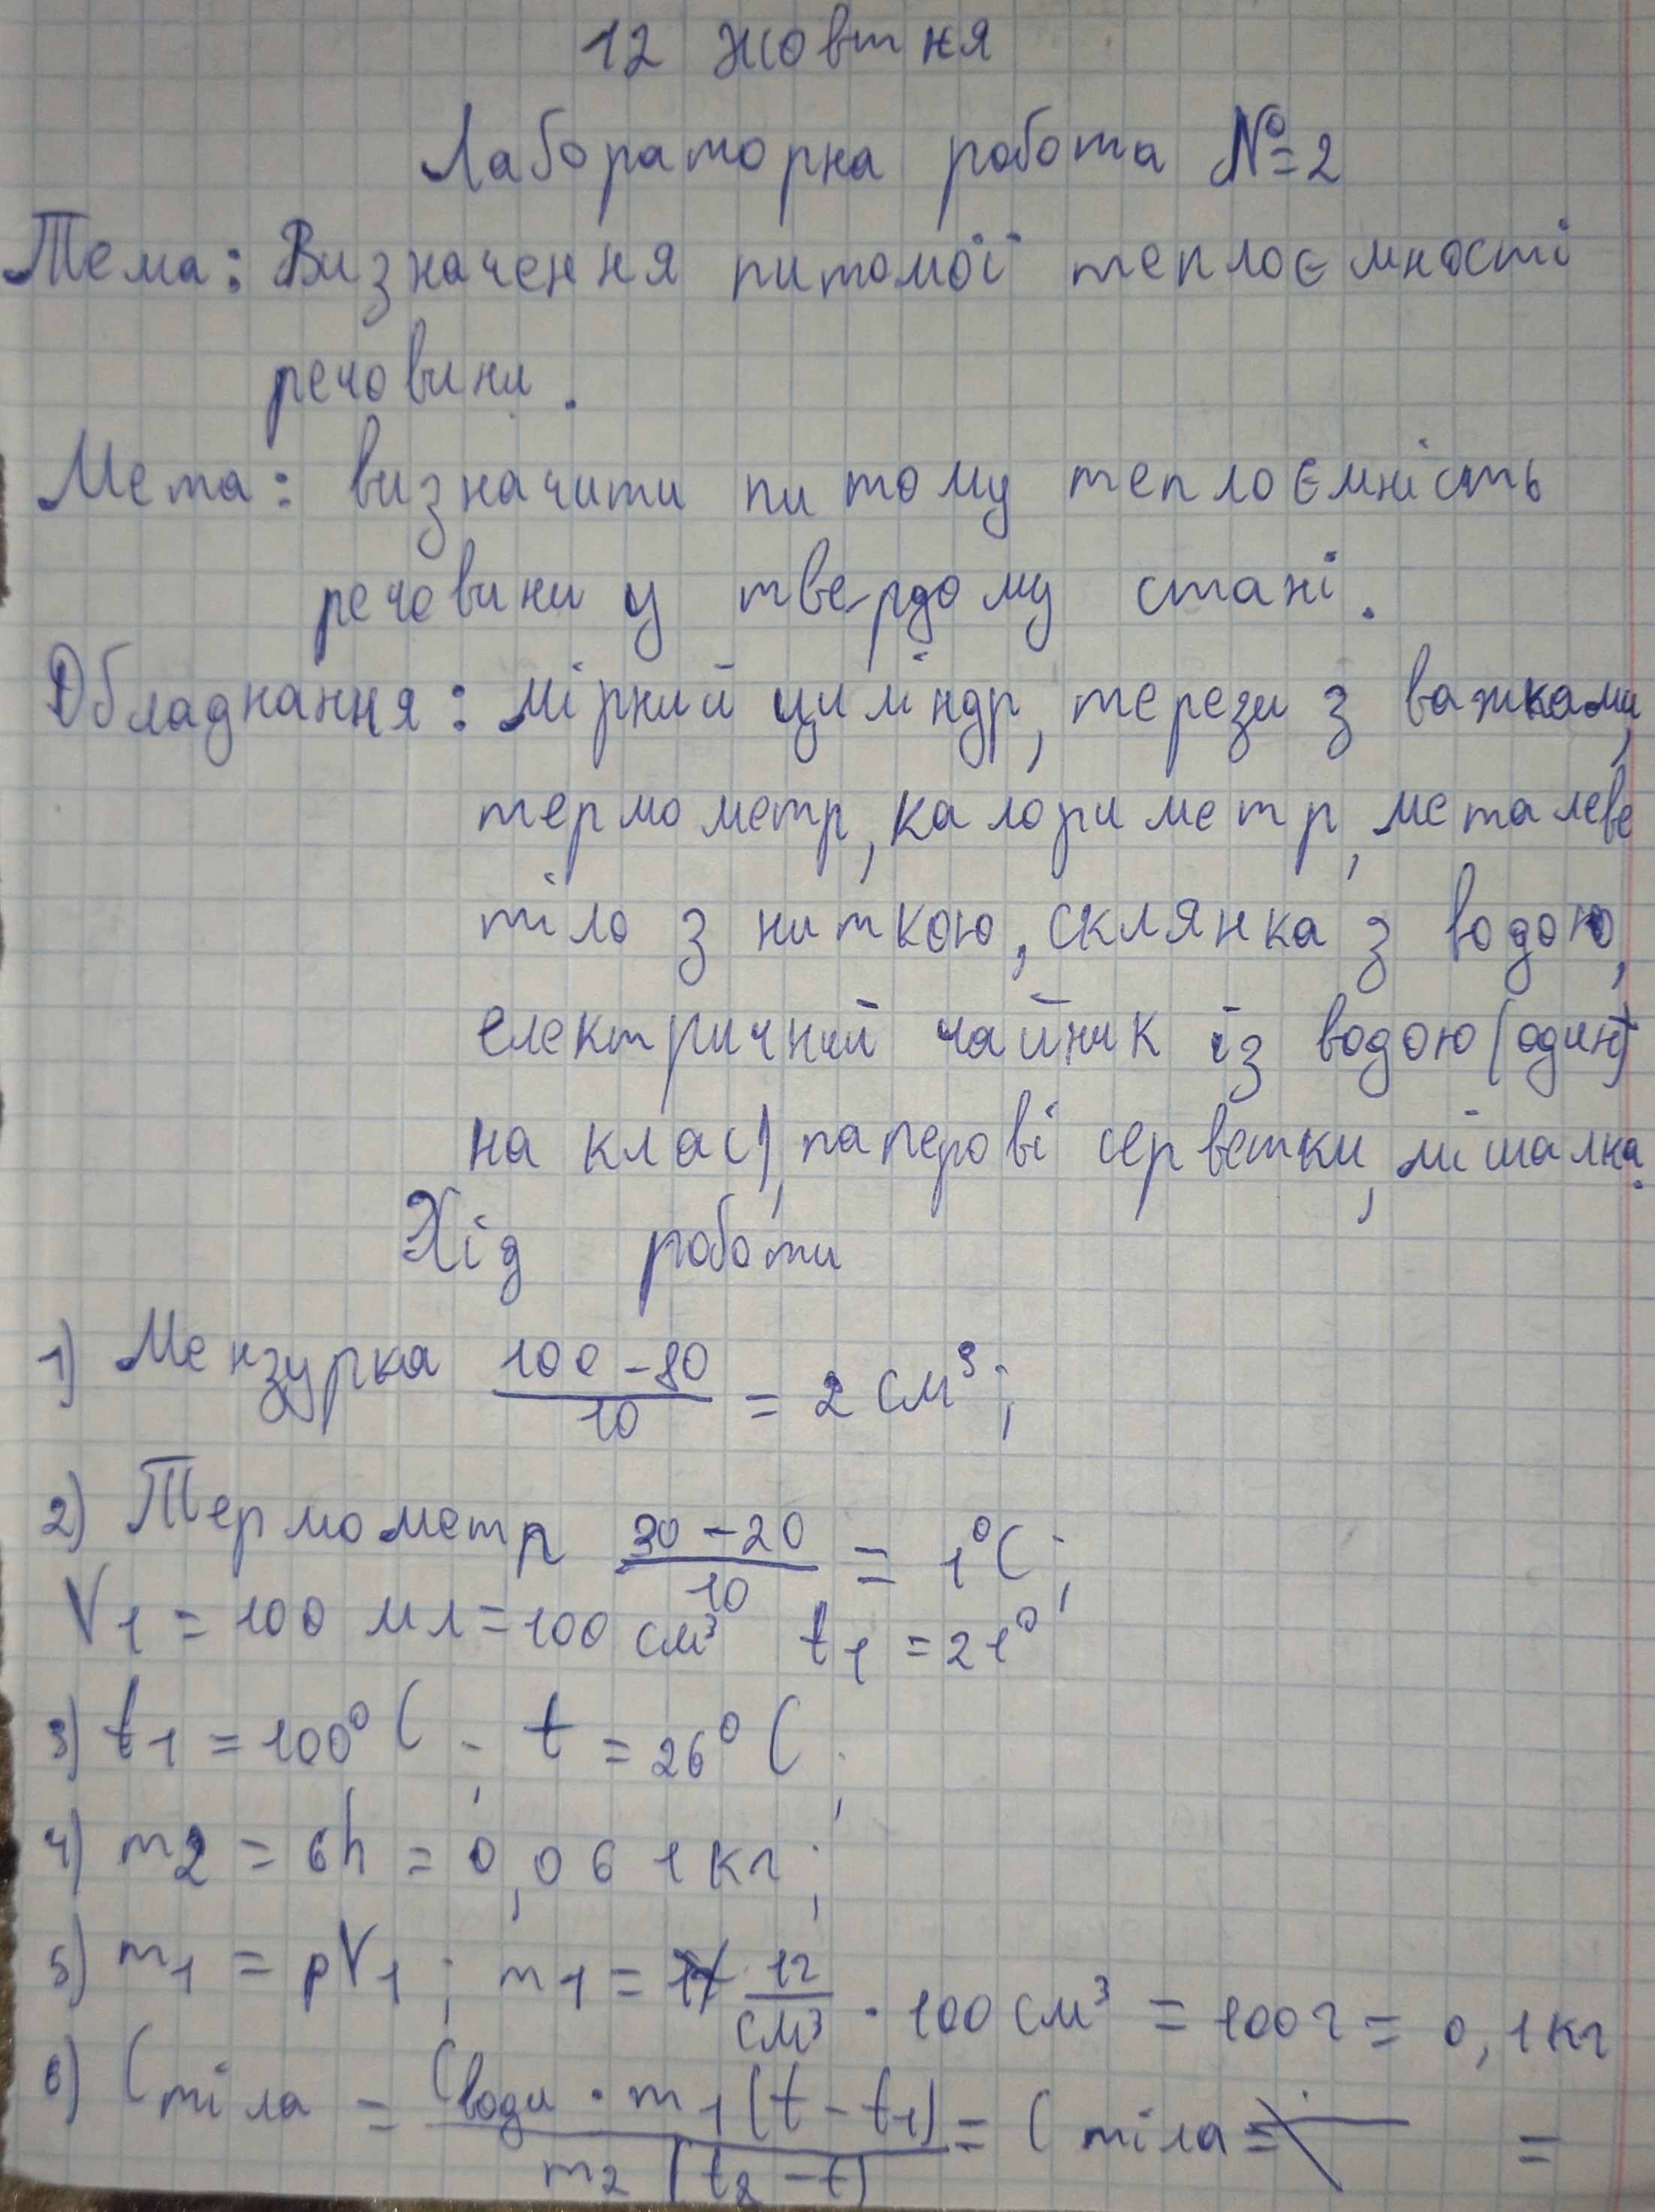 12 жовтня
Лабораторна робота №2
Тема: Визначення питомої теплоємності
речовини.
Мета: визначити питому теплоємність
речовини у твердому стані.
Обладнання: мірний циліндр, терези з важками,
термометр, калориметр, металеве
тіло з ниткою, склянка з водою,
електричний чайник із водою (один
на клас), паперові серветки, мішалка.
Хід роботи
1) Мензурка (100-80)/10 = 2 см³;
2) Термометр (30-20)/10 = 1°C;
V₁ = 100 мл = 100 см³ t₁ = 21°
3) t₁ = 100°C; t = 26°C;
4) m₂ = 6h = 0,061 кг;
5) m₁ = pV₁; m₁ = 1г/см³ · 100 см³ = 100г = 0,1 кг
6) Cтіла = Cводи · m₁(t-t₁)/m₂(t₂-t) = Cтіла = =